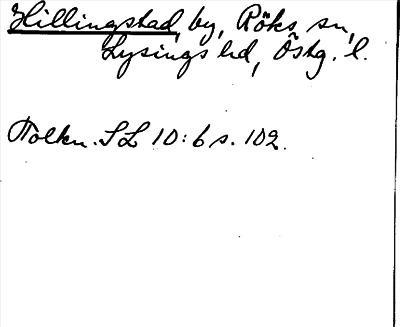 Hillingstad, by, Röks sn,
Lysings hd, Östg. l.
Tolkn. SL 10:6 s. 102.